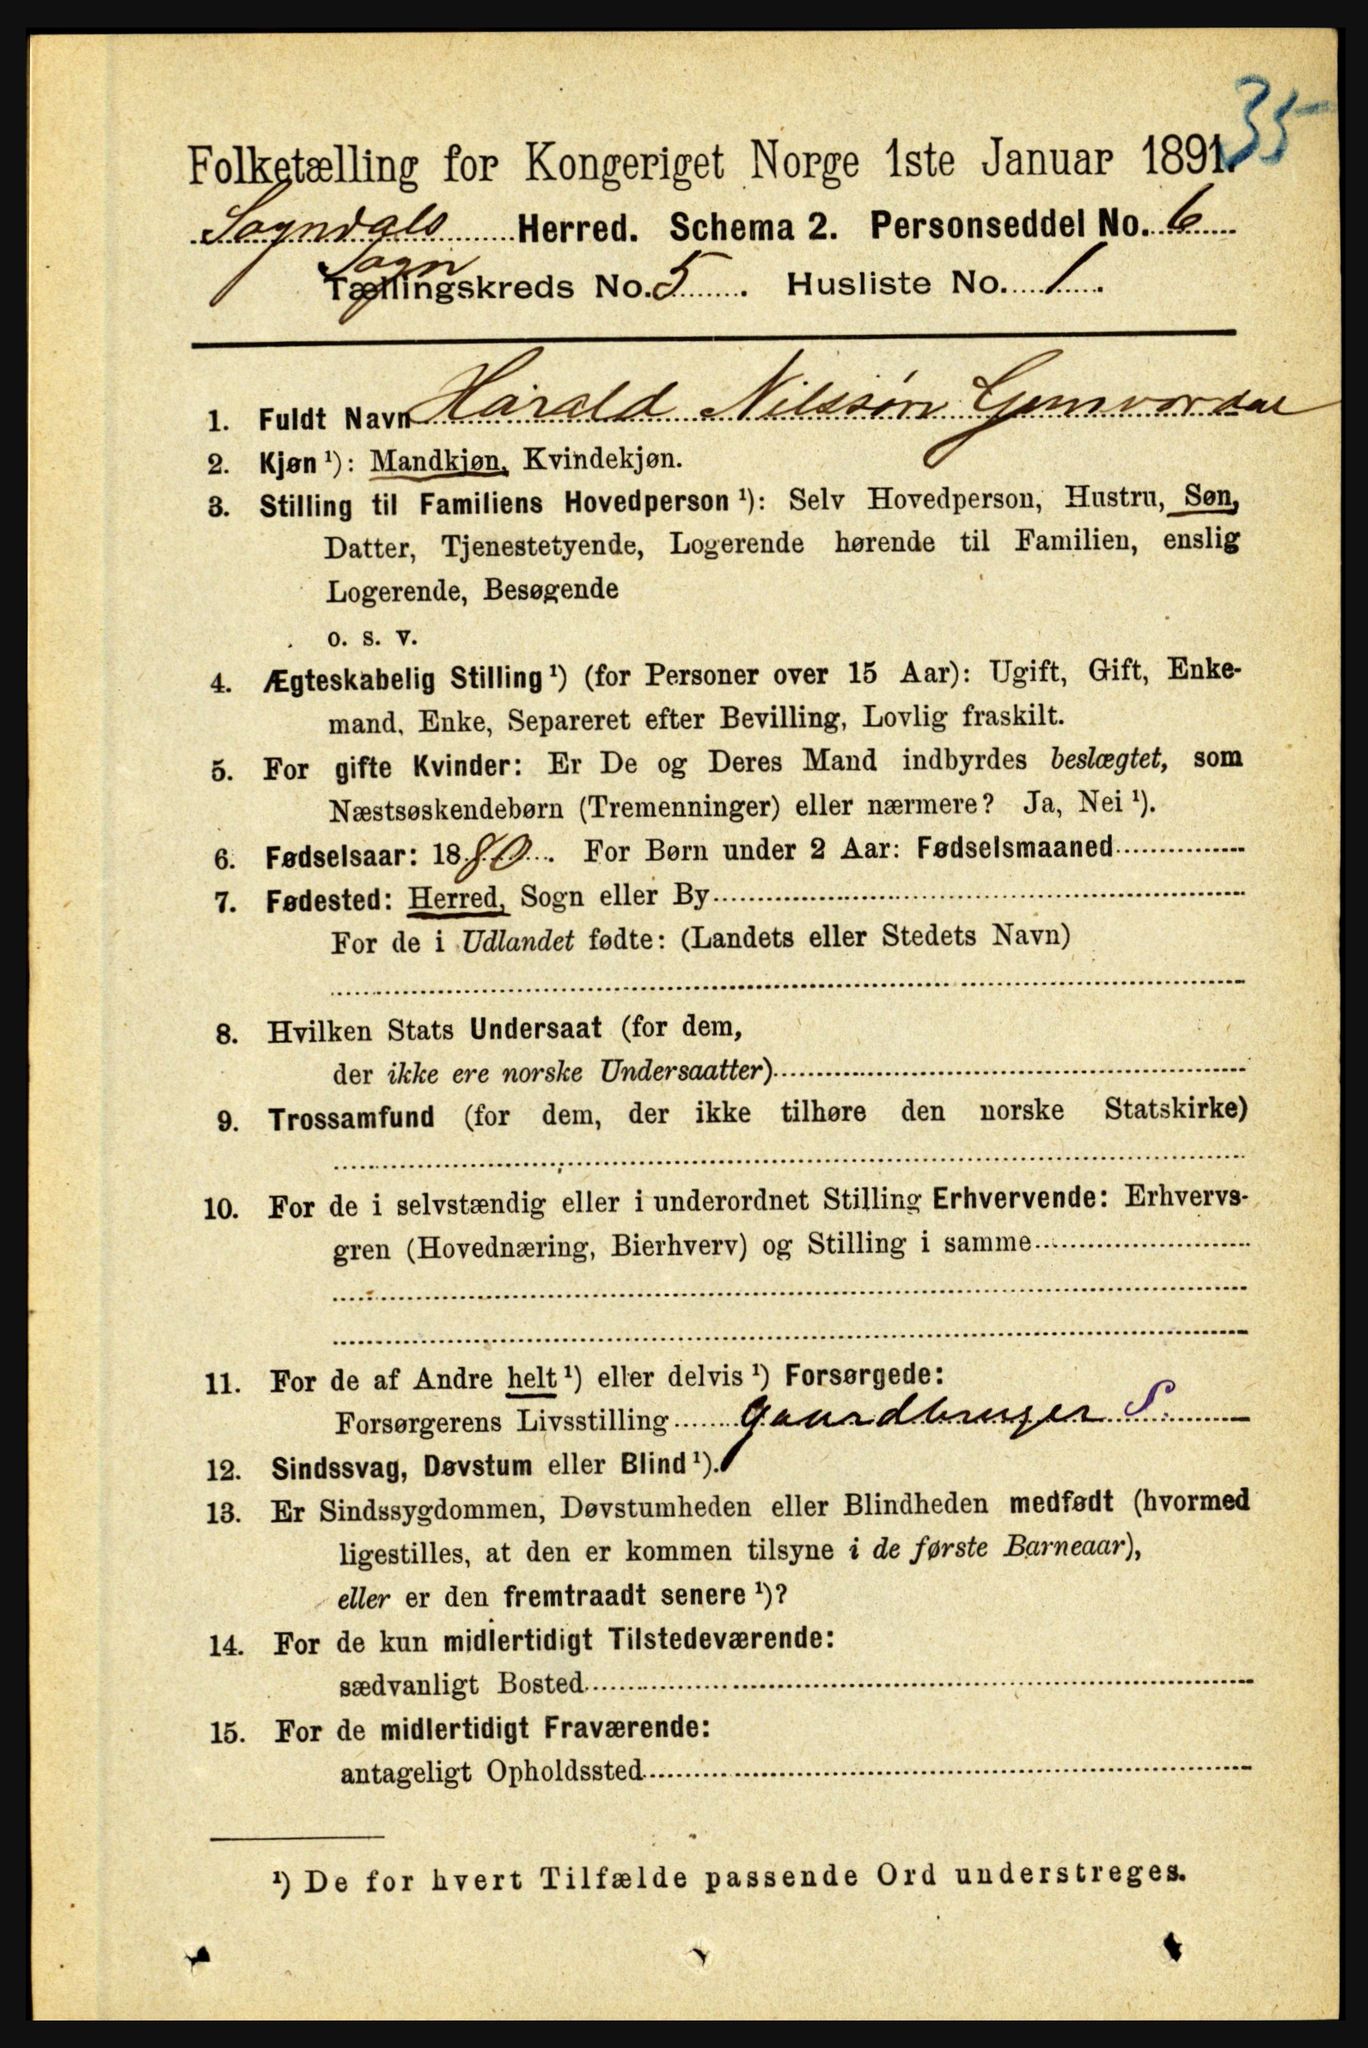 35
Folketælling for Kongeriget Norge 1ste Januar 1891.
Sogndals Herred. Schema 2. Personseddel No. 6
Sogn
Tællingskreds No. 5. Husliste No. 1.
1. Fuldt Navn Harald Nilssøn
2. Kjøn ¹): Mandkjøn, Kvindekjøn.
3. Stilling til Familiens Hovedperson ¹): Selv Hovedperson, Hustru, Søn,
Datter, Tjenestetyende, Logerende hørende til Familien, enslig
Logerende, Besøgende
o. s. v.
4. Ægteskabelig Stilling ¹) (for Personer over 15 Aar): Ugift, Gift, Enke-
mand, Enke, Separeret efter Bevilling, Lovlig fraskilt.
5. For gifte Kvinder: Er De og Deres Mand indbyrdes beslægtet, som
Næstsøskendebørn (Tremenninger) eller nærmere? Ja, Nei ¹).
6. Fødselsaar: 1880. For Børn under 2 Aar: Fødselsmaaned
7. Fødested: Herred, Sogn eller By
For de i Udlandet fødte: (Landets eller Stedets Navn)
8. Hvilken Stats Undersaat (for dem,
der ikke ere norske Undersaatter)
9. Trossamfund (for dem, der ikke tilhøre den norske Statskirke)
10. For de i selvstændig eller i underordnet Stilling Erhvervende: Erhvervs-
gren (Hovednæring, Bierhverv) og Stilling i samme
11. For de af Andre helt ¹) eller delvis ¹) Forsørgede:
Forsørgerens Livsstilling Gaardbruger S.
12. Sindssvag, Døvstum eller Blind ¹).
13. Er Sindssygdommen, Døvstumheden eller Blindheden medfødt (hvormed
ligestilles, at den er kommen tilsyne i de første Barneaar),
eller er den fremtraadt senere ¹)?
14. For de kun midlertidigt Tilstedeværende:
sædvanligt Bosted
15. For de midlertidigt Fraværende:
antageligt Opholdssted
¹) De for hvert Tilfælde passende Ord understreges.